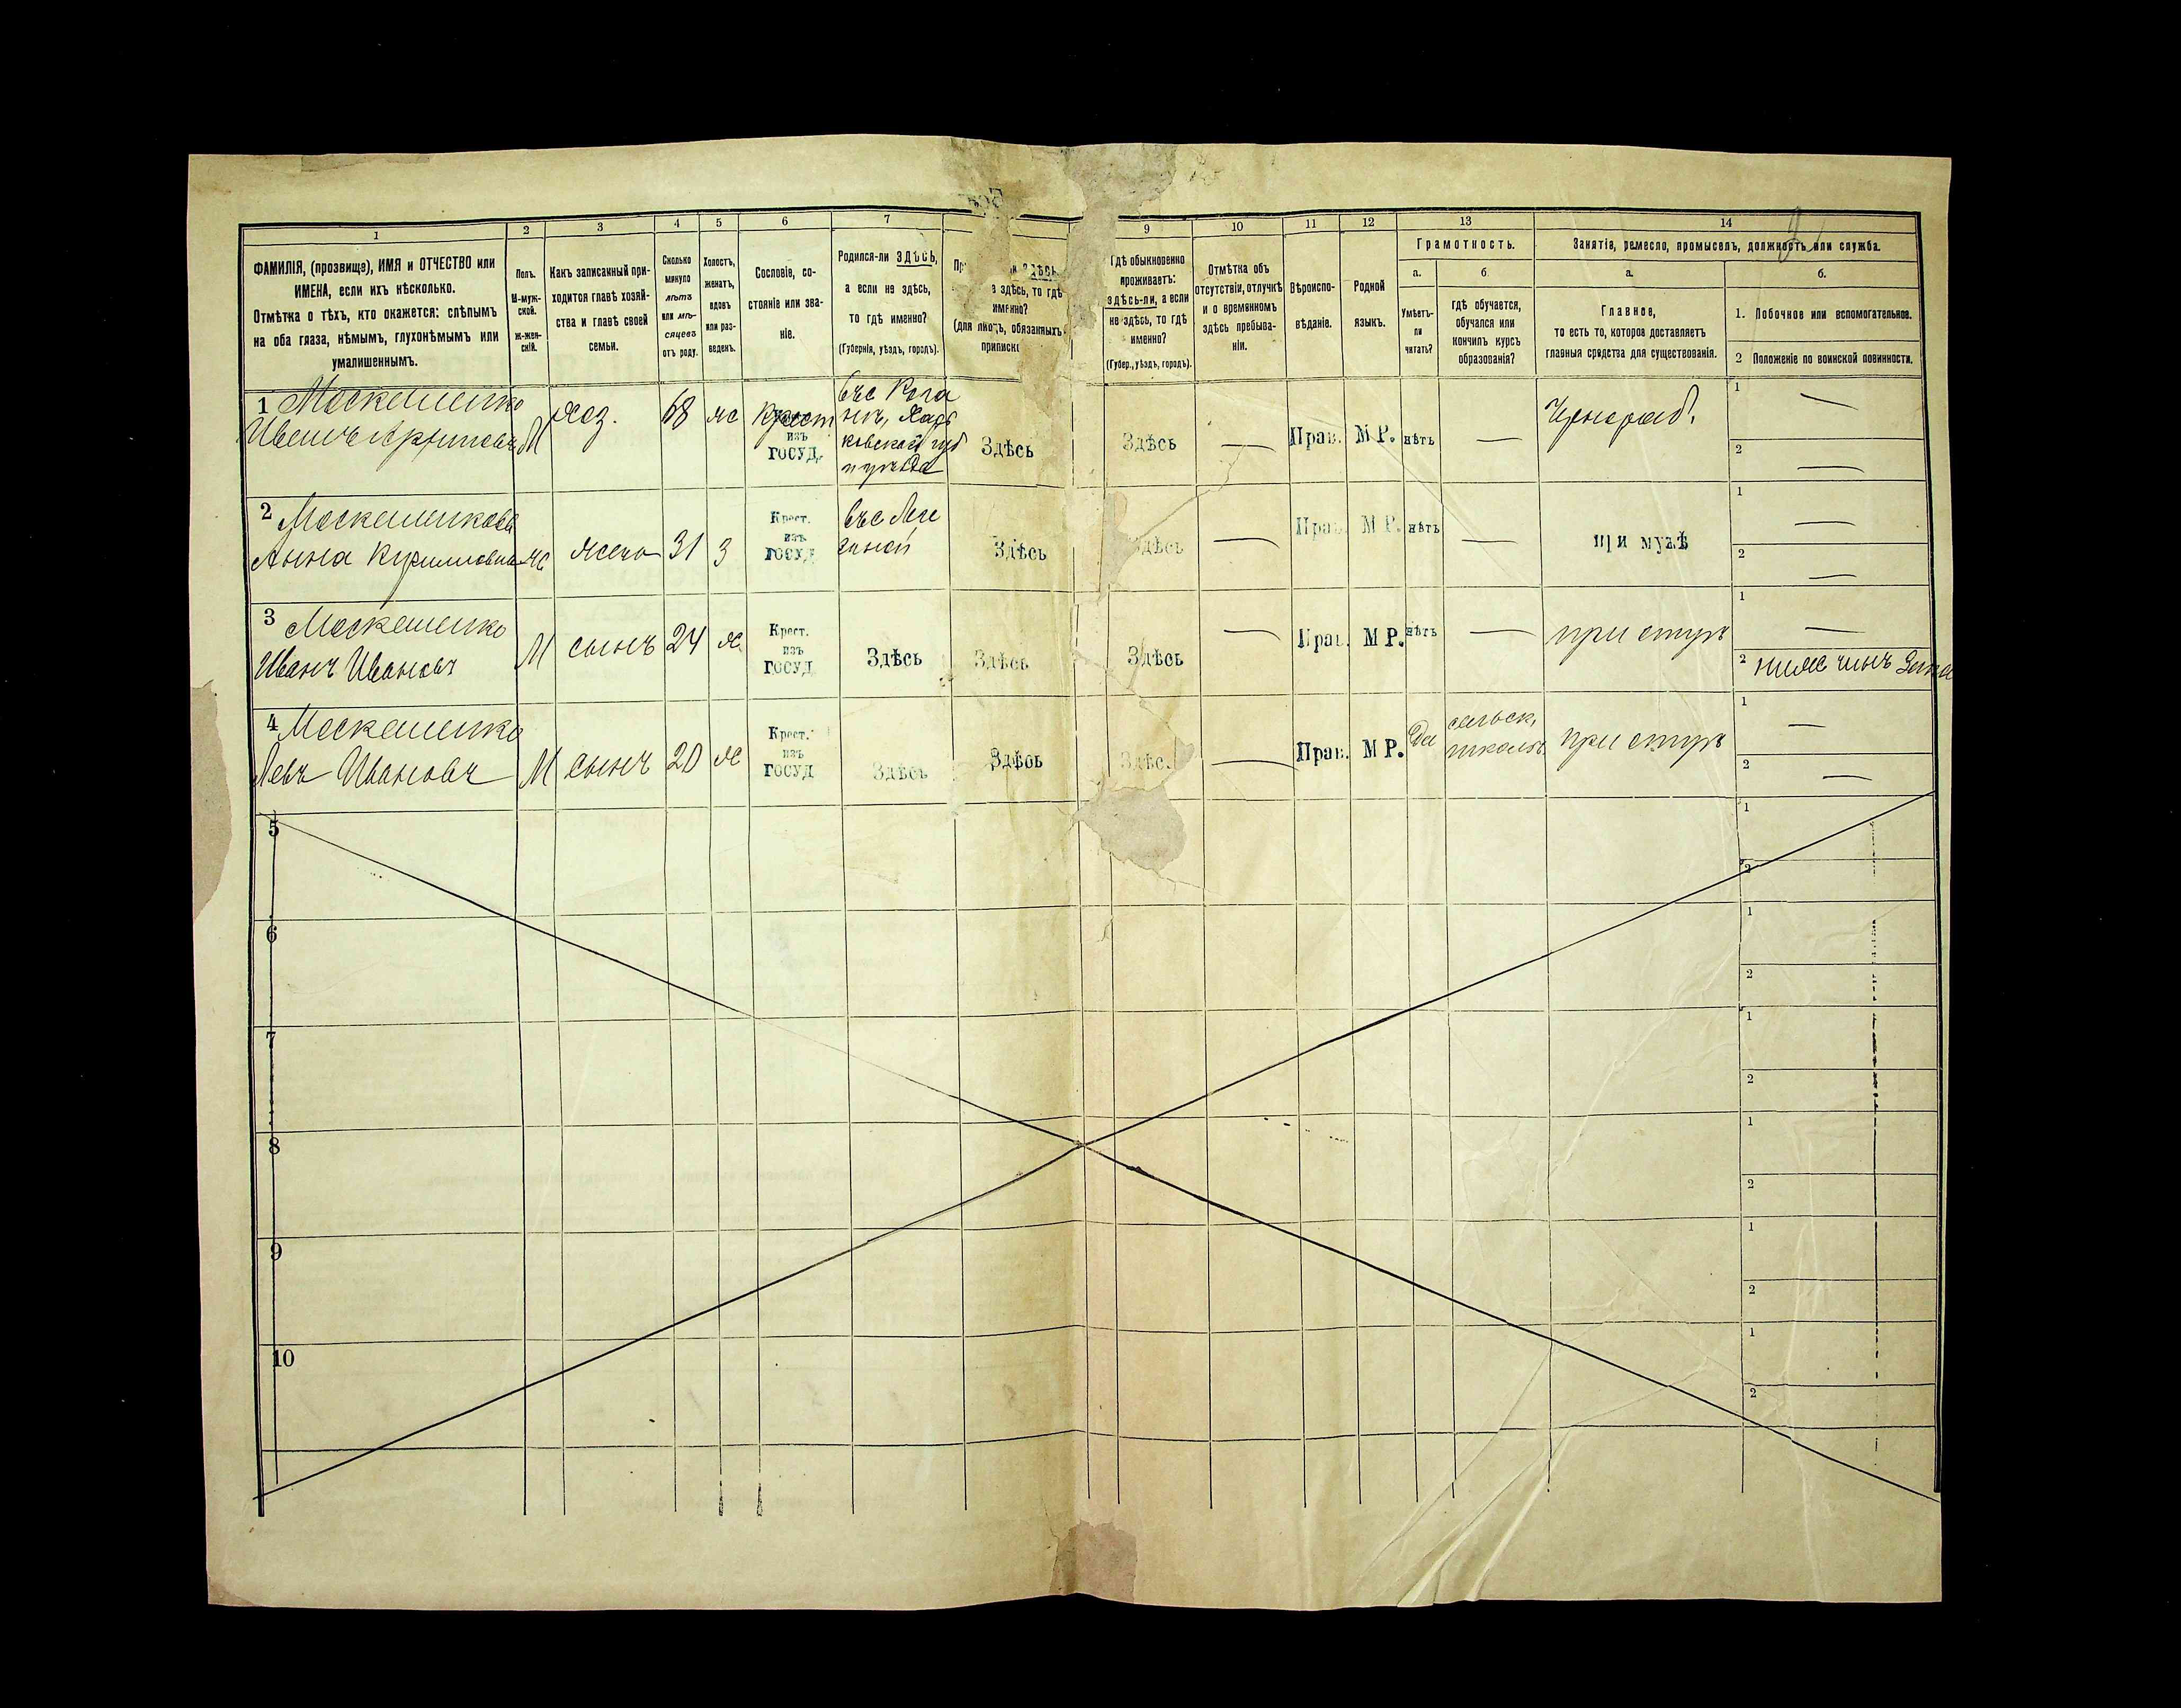 1 2 3 4 5 6 7 9 10 11 12 13 14
ФАМИЛІЯ, (прозвище), ИМЯ и ОТЧЕСТВО или
ИМЕНА, если ихъ нѣсколько.
Отмѣтка о тѣхъ, кто окажется: слѣпымъ
на оба глаза, нѣмымъ, глухонѣмымъ или
умалишеннымъ.
Полъ.
М-муж-
ской.
Ж-жен-
скій.
Какъ записанный при-
ходится главѣ хозяй-
ства и главѣ своей
семьи.
Сколько
минуло
лѣтъ
или мѣ-
сяцевъ
отъ роду.
Холостъ,
женатъ,
вдовъ
или раз-
веденъ.
Сословіе, со-
стояніе или зва-
ніе.
Родился-ли здѣсь,
а если не здѣсь,
то гдѣ именно?
(Губернія, уѣздъ, городъ).
здѣсь,
здѣсь, то гдѣ
именно?
(для лицъ, обязанныхъ
Гдѣ обыкновенно
проживаетъ:
здѣсь-ли, а если
не здѣсь, то гдѣ
именно?
(Губер., уѣздъ, городъ).
Отмѣтка объ
отсутствіи, отлучкѣ
и о временномъ
здѣсь пребыва-
ніи.
Вѣроиспо-
вѣданіе.
Родной
языкъ.
Грамотность.
а.
Умѣетъ-
ли
читать?
б
гдѣ обучается,
обучался или
кончилъ курсъ
образованія?
Занятіе, ремесло, промыселъ, должность или служба.
а.
Главное,
то есть то, которое доставляетъ
главныя средства для существованія.
б.
1. Побочное или вспомогательное.
2 Положеніе по воинской повинности.
1 Москаленко
Иванъ М хоз. 68 ж Крест
изъ
госуд.
въ с Рога
нь, Харь
ковской губ
и уѣзда
Здѣсь Здѣсь — Прав. М Р. нѣтъ — Чернораб.
1 —
2 —
2 Москаленкова
Анна Кирилловна ж жена 31 З Крест.
изъ
госуд
въ с
Здѣсь Здѣсь — Прав. М Р. нѣтъ — при мужѣ
1 —
2 —
3 Москаленко
Иванъ Ивановъ М сынъ 24 Х. Крест.
изъ
госуд
Здѣсь Здѣсь Здѣсь — Прав. М Р. нѣтъ — при отцѣ
1 —
2 ниж чинъ Запа
4 Москаленко
Левъ Ивановъ М сынъ 20 Х Крест.
изъ
госуд
Здѣсь Здѣсь Здѣсь — Прав. М Р. Да сельск.
школѣ при отцѣ
1 —
2 —
5 1
2
6 1
2
7 1
2
8 1
2
9 1
2
10 1
2